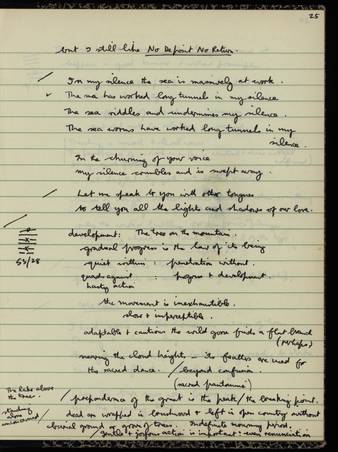 25
but I still like No Deposit No Return.
In my silence the sea is massively at work.
The sea has worked long tunnels in my silence
The sea riddles and undermines my silence.
The sea worms have worked long tunnels in my
silence.
In the churning of your voice
my silence crumbles and is swept away.
Let me speak to you with other tongues
to tell you all the lights and shadows of our love.
development: The tree on the mountain.
gradual progress is the law of its being
53/28
quiet within : penetration without.
guards against : progress & development.
hasty action
the movement is inexhaustible.
slow & imperceptible.
adaptable & cautious the wild goose finds a flat branch
(perhaps)
nearing the cloud heights — its feathers are used for
the sacred dance. / beyond confusion.
(sacred pantomime)
The lake above
the trees.
/ preponderance of the great is the peak / the breaking point.
standing
alone
dead are wrapped in brushwood & left in open country without
burial ground or grove of trees. Indefinite mourning period.
/ gentle & joyous action is important : even renunciation